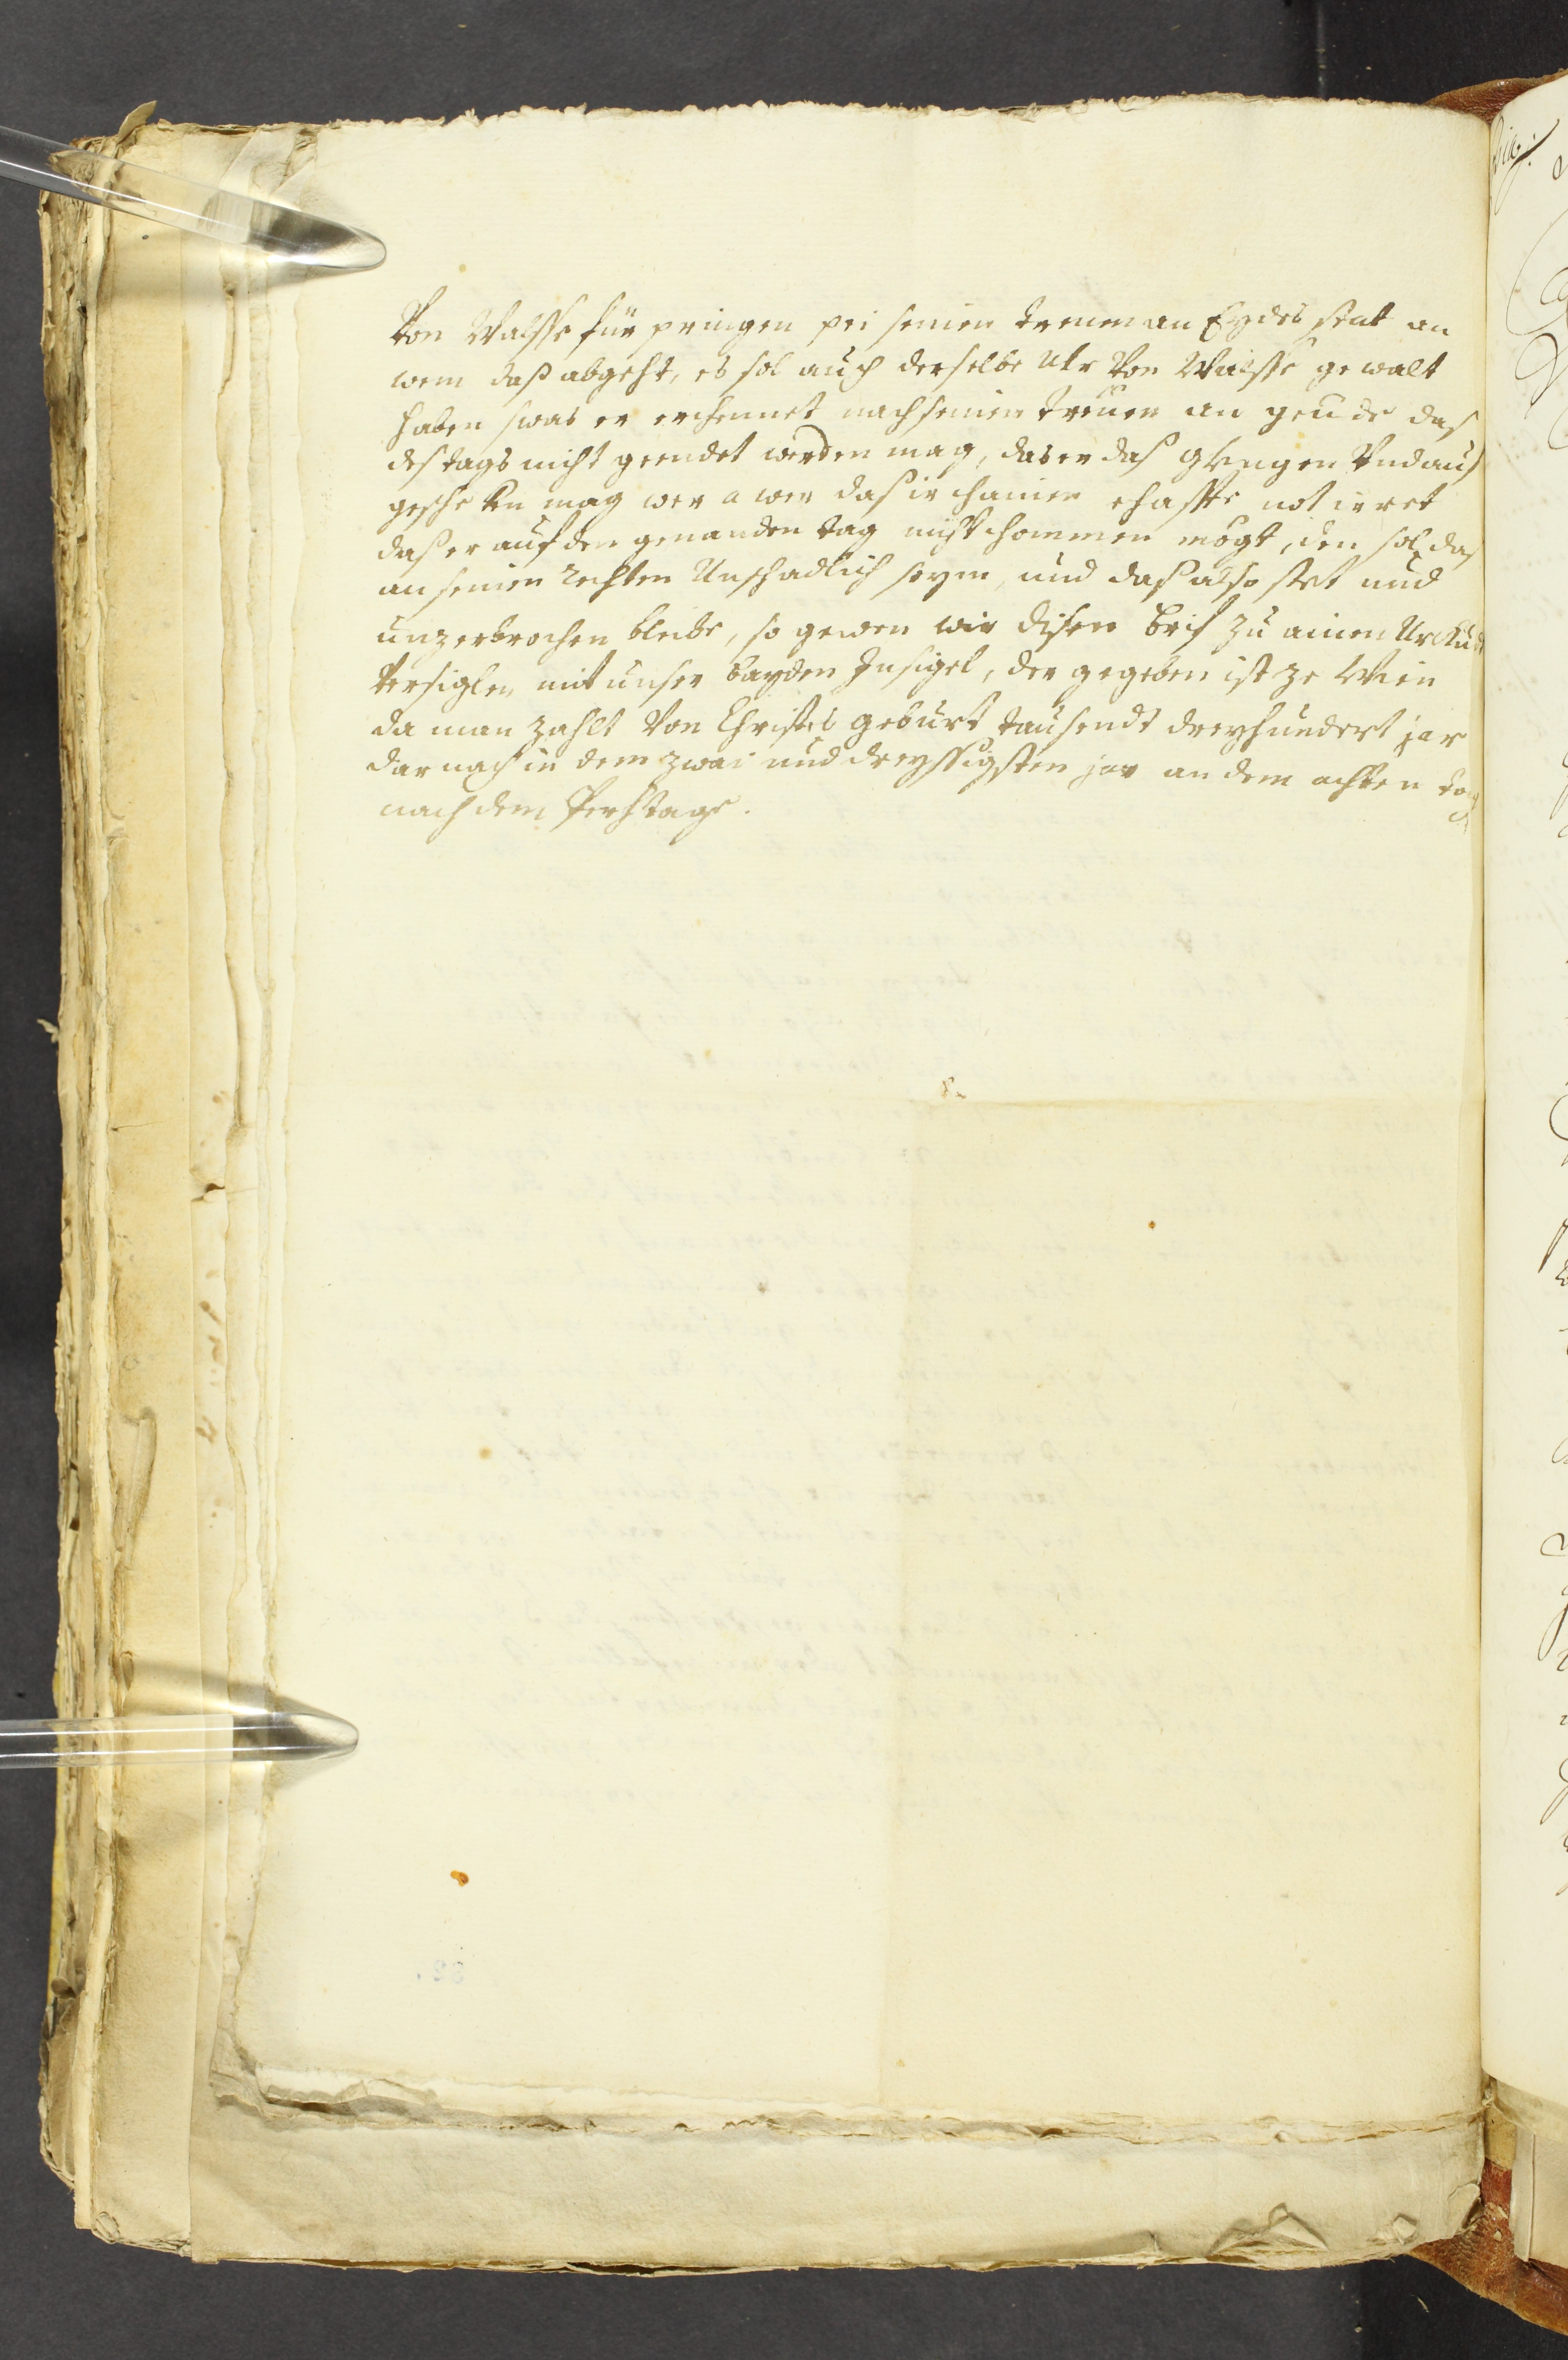 Von Walsse für pringen pei seinen treuen an Eydes stat an
wem daß abgeht, es sol auch derselbe Ulr Von Walsse gewalt
haben swas er erchennet nach seinen treuen an geude das
des tags nicht geendet werden mag, das er das
mag wer awer daß ir chainen ehaffte not irret
daß er auf den genanden tag nicht chommen mögt, den sol das
an seinen rechten Unschadlich seyen, und daß also stet und
unzerbrochen bleibe, so gewen wir disen brif zu ainen Urckund
Versiglen mit unser bayden Insigel, der gegeben ist ze Wien
da man zahlt Von Christes geburt tausendt dreyhundert jar
dar nach in dem zwai und dreyssigsten jar an dem achten tag
nach dem Perchtage.